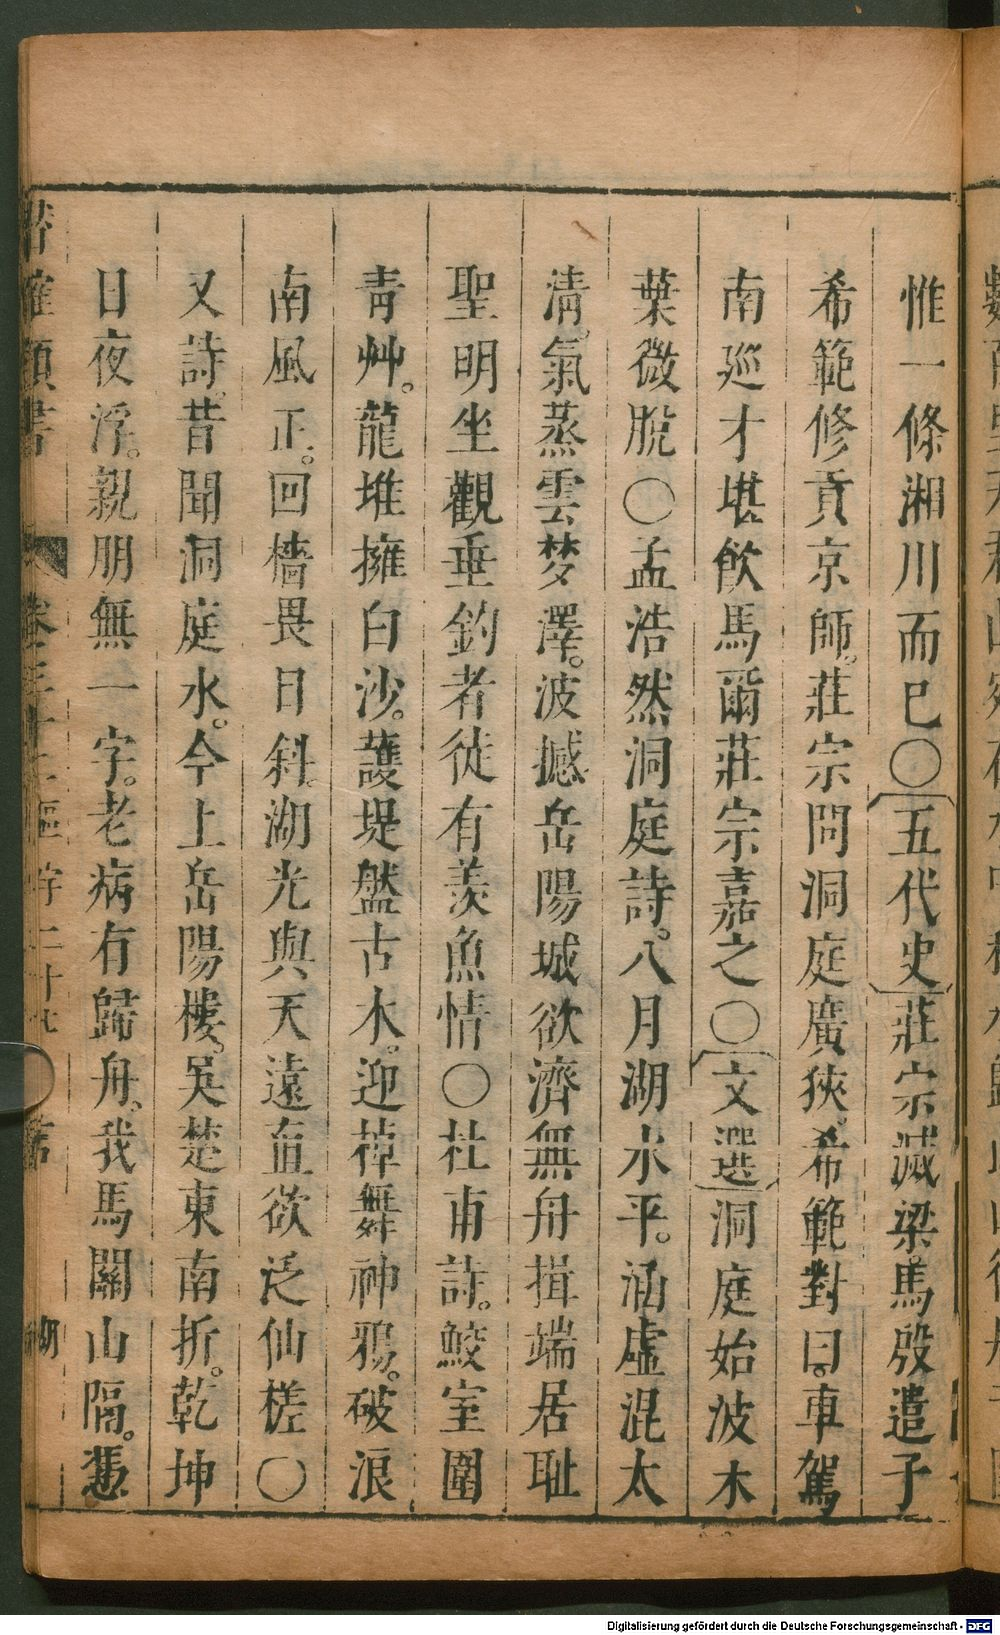 惟一條湘川而已〇五代史莊宗滅梁馬殷遣子
希範修貢京師。莊宗問洞庭廣狹。希範對曰。車駕
南巡才堪飲馬爾莊宗嘉之〇文選洞庭始波木
葉微脫〇孟浩然洞庭詩。八月湖水平。涵虛混太
清。氣蒸雲夢澤。波撼岳陽城欲濟無舟揖端居耻
聖明坐觀垂釣者徒有羨魚情〇杜甫詩。鮫室圍
青艸。龍堆擁白沙。護堤盤古木。迎棹舞神鴉。破浪
南風正。回檣畏日斜。湖光與天遠直欲泛仙槎〇
又詩。昔聞洞庭水。今上岳陽樓。吳楚東南折。乾坤
日夜浮。親朋無一字。老病有歸舟。我馬關山隔。憑
類書
Digitalisierung gefördert durch die Deutsche Forschungsgemeinschaft - DFG